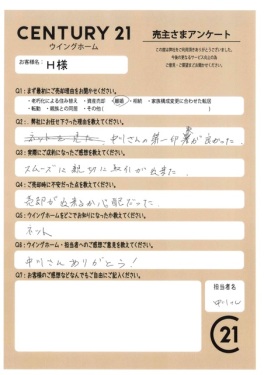 CENTURY 21
ウイングホーム
売主さまアンケート
この度は弊社をご利用頂きありがとうございました。
今後の更なるサービス向上の為
ご意見・ご要望をどうぞお聞かせください。
お客様名: H様
Q1: まず最初にご売却理由をお聞かせください。
・老朽化による住み替え ・資産売却 ・離婚 ・相続 ・家族構成変更に合わせた転居
・転勤 ・親族との同居 ・その他( )
Q2: 弊社にお任せ下さった理由を教えてください。
中川さんの第一印象が良かった。
Q3: 実際にご成約になったご感想を教えてください。
スムーズに親切に取引が出来た。
Q4: ご売却時に不安だった点を教えてください。
売却が出来るか心配だった。
Q5: ウイングホームをどこでお知りになったか教えてください。
ネット
Q6: ウイングホーム・担当者へのご感想ご意見を教えてください。
中川さんありがとう!
Q7: お客様のご感想などなんでもご自由にご記入ください。
担当者名
中川
C21